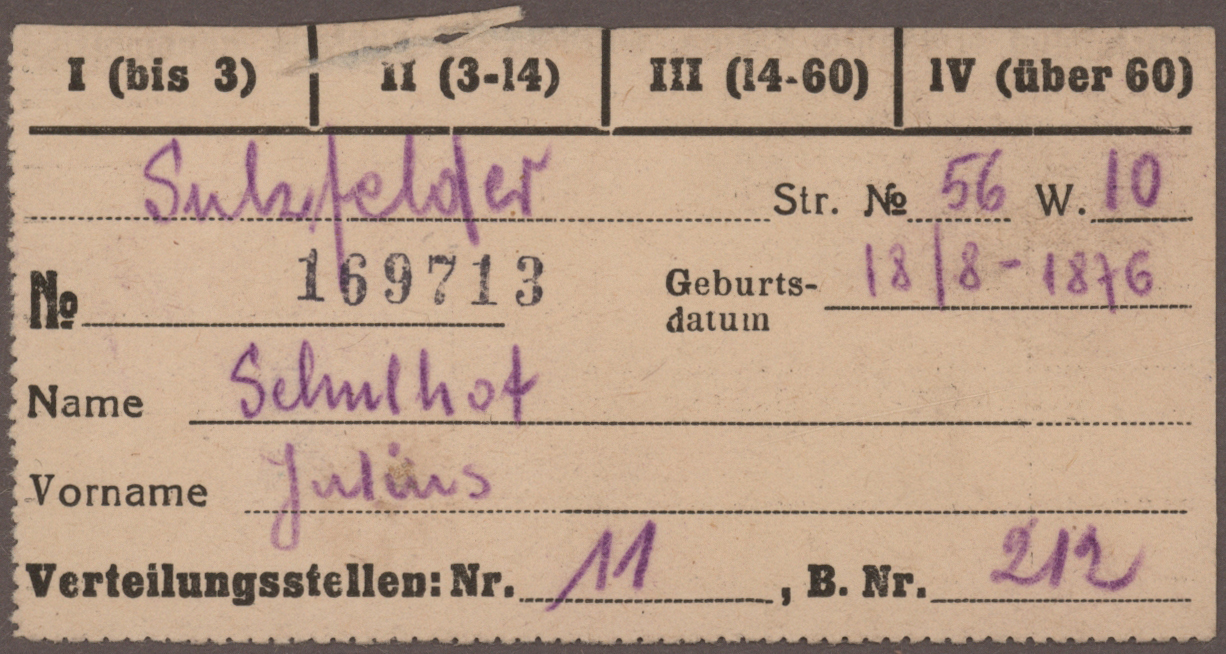 I (bis 3) II (3-14) III (14-60) IV (über 60)
Sulzfelder Str. № 56 W. 10
№ 169713 Geburts-datum 18/8-1876
Name Schulhof
Vorname Julius
Verteilungsstellen: Nr. 11, B. Nr. 212